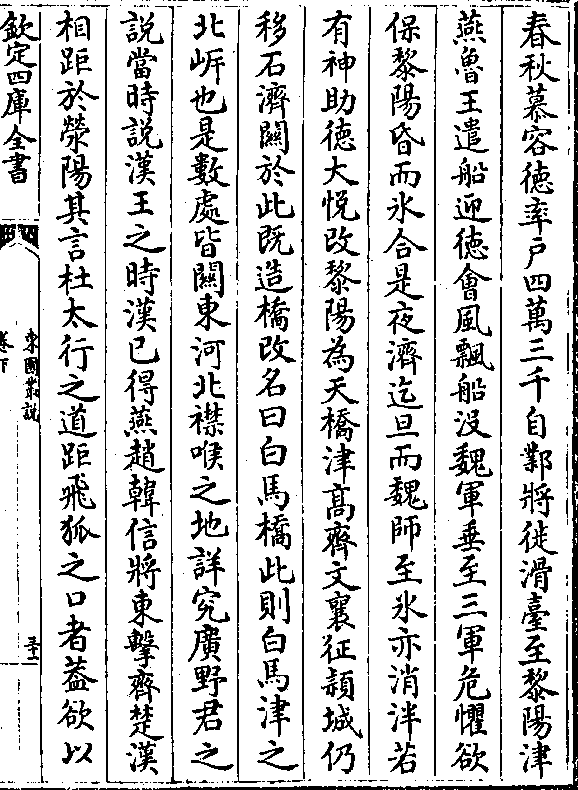 春秋慕容徳率戸四萬三千自鄴將徙滑臺至黎陽津
燕魯王遣船迎徳會風飄船没魏軍垂至三軍危懼欲
保黎陽昏而氷合是夜濟迄旦而魏師至氷亦消泮若
有神助徳大悦改黎陽為天橋津髙齊文襄征潁城仍
移石濟關於此既造橋改名曰白馬橋此則白馬津之
北岍也是數處皆關東河北襟喉之地詳究廣野君之
說當時說漢王之時漢已得燕趙韓信將東擊齊楚漢
相距於滎陽其言杜太行之道距飛狐之口者葢欲以
欽定四庫全書
卷下
三十一